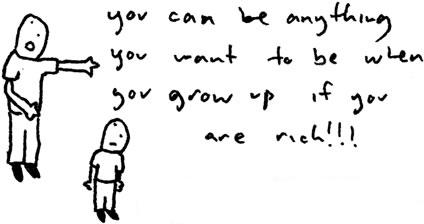 you can be anything
you want to be when
you grow up if you
are rich!!!